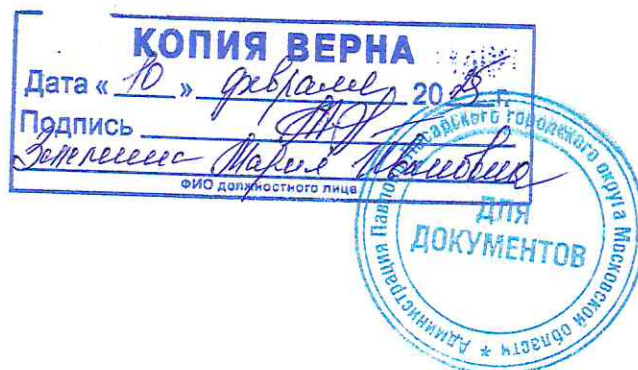 КОПИЯ ВЕРНА
Дата « 10 » февраля 2025 г.
Подпись
Мария Ивановна
ФИО должностного лица
Администрация Павло-Посадского городского округа Московской области *
ДЛЯ
ДОКУМЕНТОВ